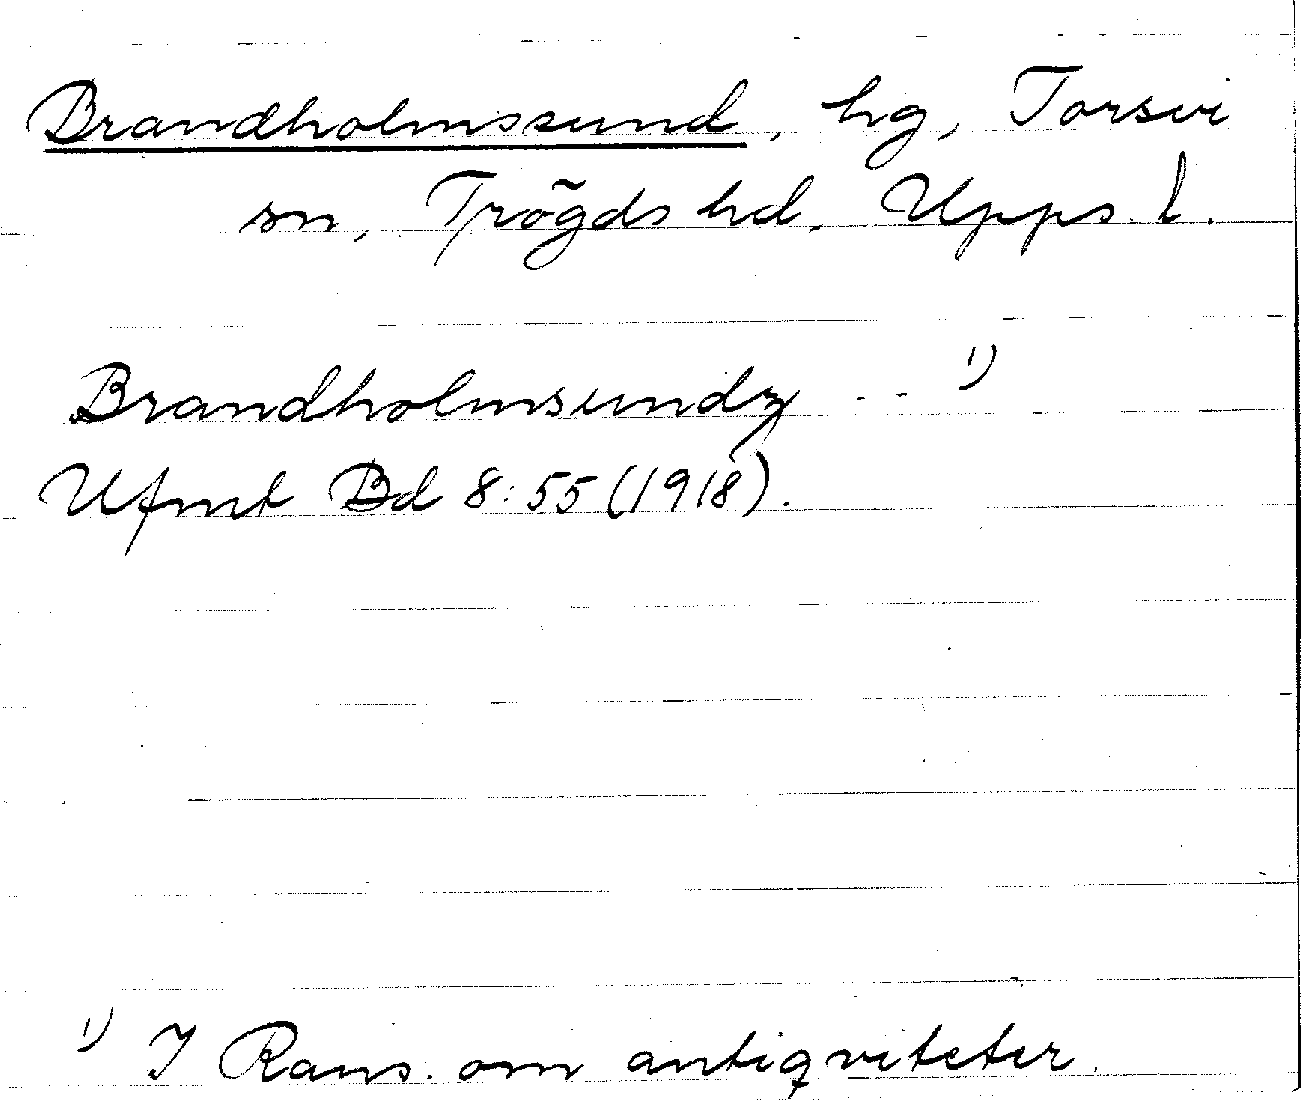 Brandholmssund, hg, Torsvi
sn, Trögds hd, Upps. l.
Brandholmsundz - - 1)
Ufmt Bd 8:55 (1918).
1) I Rans. om antiqviteter.